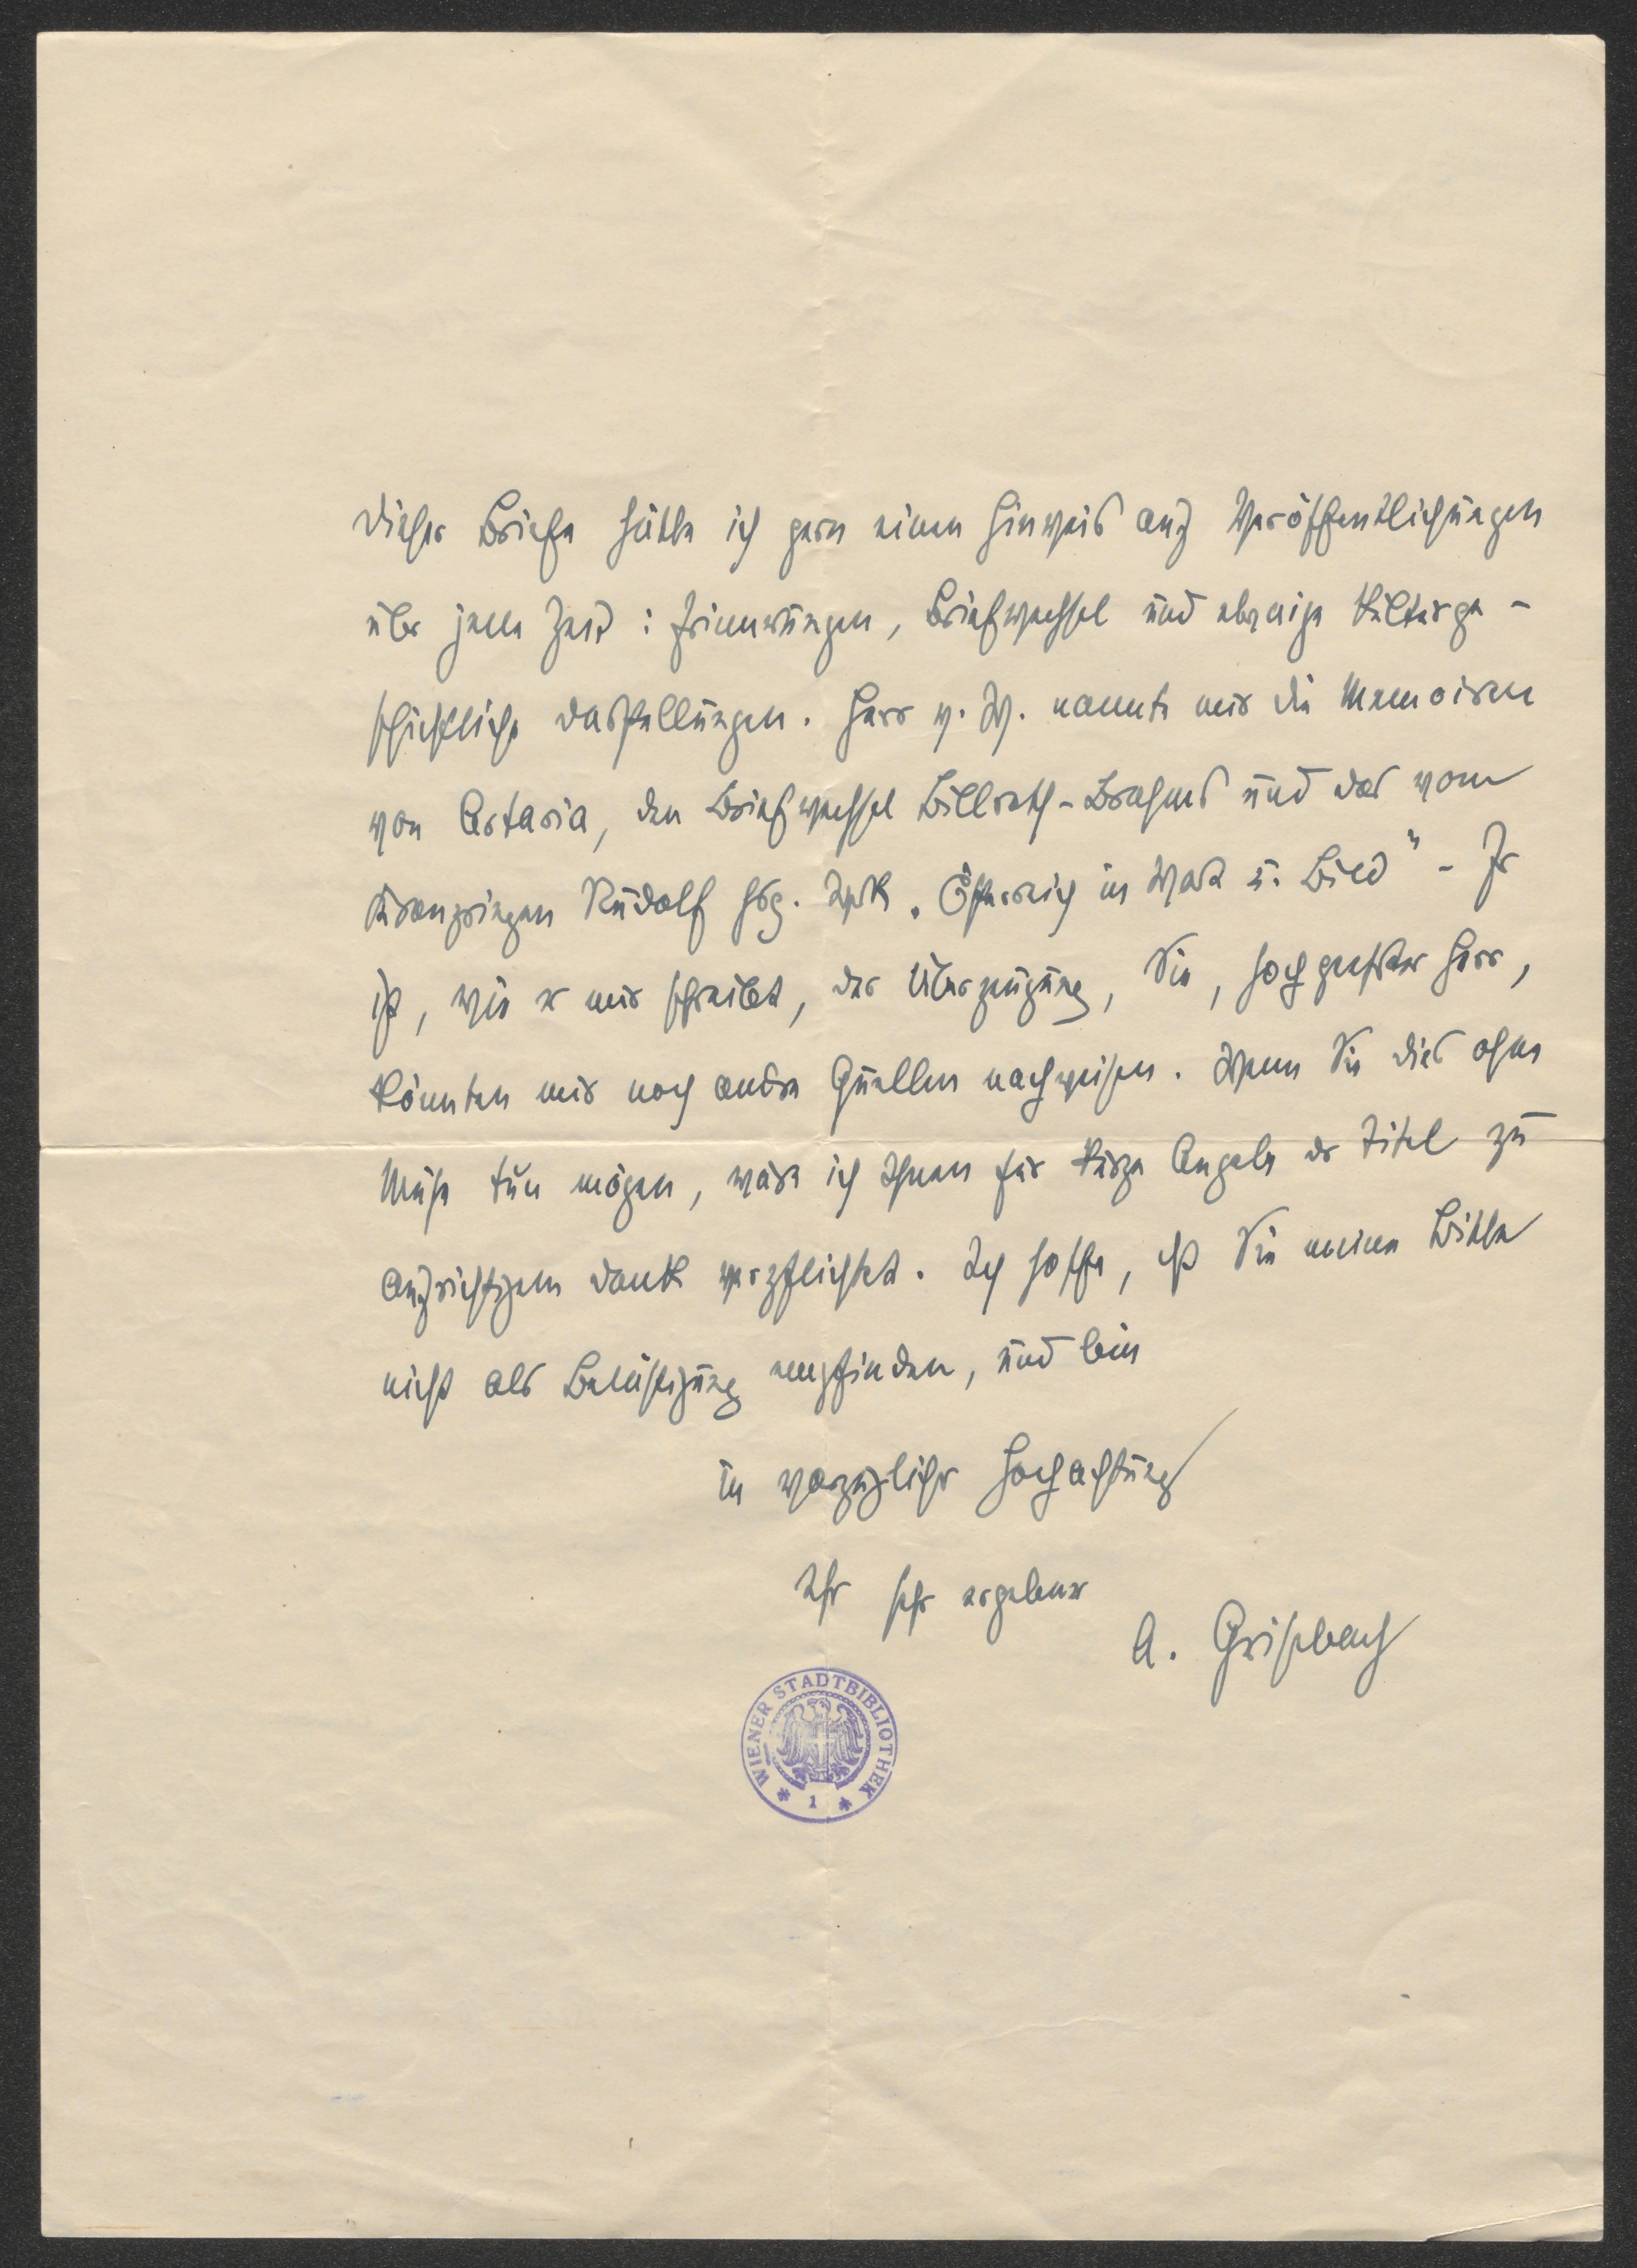 dieser Briefe hätte ich gern einen Hinweis auf Veröffentlichungen
über jene Zeit: Erinnerungen, Briefwechsel und etwaige kulturge-
schichtliche Darstellungen. Herr v. W. nannte mir die Memoiren
von Artaria, den Briefwechsel Billroth-Brahms und das vom
Kronprinzen Rudolf hsg. Werk „Österreich in Wort u. Bild" - Er
ist, wie er mir schreibt, der Überzeugung, Sie, hochgeehrter Herr,
könnten mir noch andre Quellen nachweisen. Wenn Sie dies ohne
Mühe tun mögen, wäre ich Ihnen für kurze Angabe der Titel zu
aufrichtigem Dank verpflichtet. Ich hoffe, dass Sie meine Bitte
nicht als Belästigung empfinden, und bin
in vorzüglicher Hochachtung
Ihr sehr ergebener
A. Grisebach
WIENER STADTBIBLIOTHEK
* 1 *